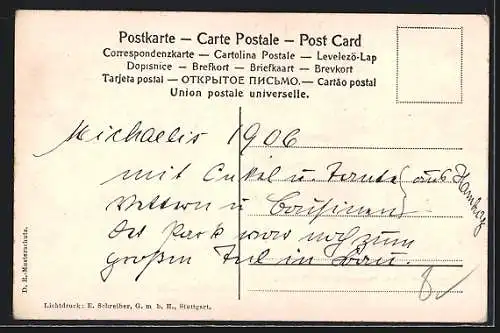 Postkarte — Carte Postale — Post Card
Correspondenzkarte — Cartolina Postale — Levelező-Lap
Dopisnice — Brefkort — Briefkaart — Brevkort
Tarjeta postal — ОТКРЫТОЕ ПИСЬМО. — Cartão postal
Union postale universelle.
Michaelis 1906
mit Onkel u. Tante
Vettern u Cousinen
aus Hamburg
Der Park war noch zum
großen Teil in Bau.
D. R.-Musterschutz.
Lichtdruck: E. Schreiber, G. m. b. H., Stuttgart.